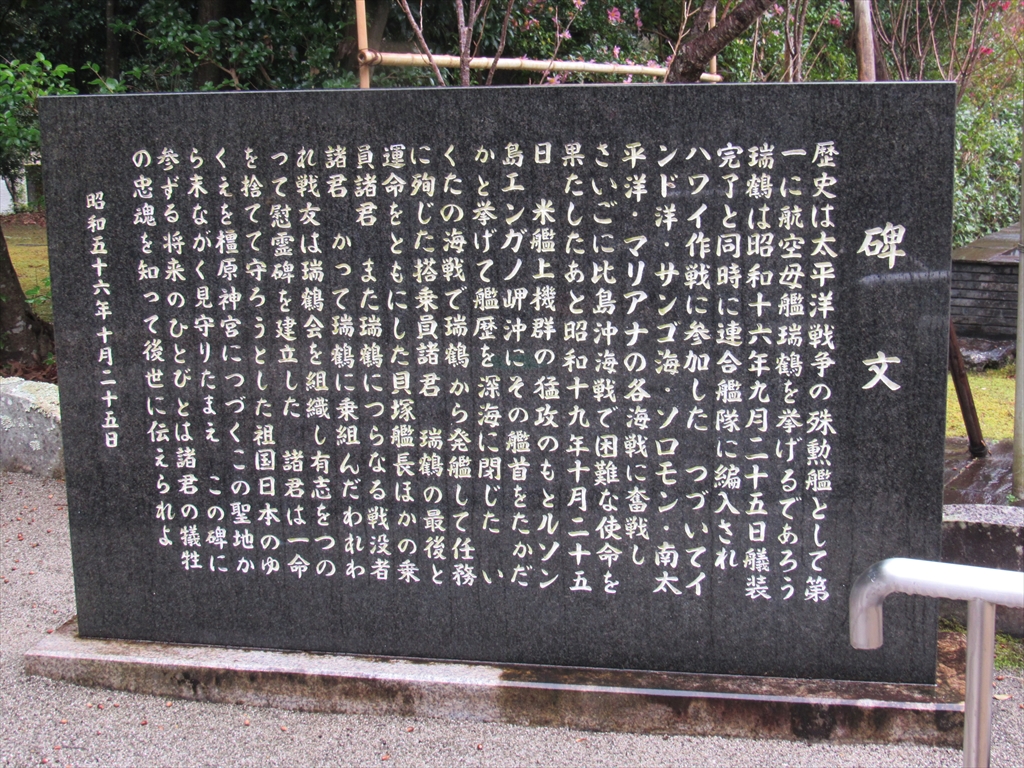 碑文
歴史は太平洋戦争の殊勲艦として第
一に航空母艦瑞鶴を挙げるであろう
瑞鶴は昭和十六年九月二十五日艤装
完了と同時に連合艦隊に編入され
ハワイ作戦に参加した　つづいてイ
ンド洋・サンゴ海・ソロモン・南太
平洋・マリアナの各海戦に奮戦し
さいごに比島沖海戦で困難な使命を
果たしたあと昭和十九年十月二十五
日　米艦上機群の猛攻のもとルソン
島エンガノ岬沖にその艦首をたかだ
かと挙げて艦歴を深海に閉じた　い
くたの海戦で瑞鶴から発艦して任務
に殉じた搭乗員諸君　瑞鶴の最後と
運命をともにした貝塚艦長ほかの乗
員諸君　また瑞鶴につらなる戦没者
諸君　かって瑞鶴に乗組んだわれわ
れ戦友は瑞鶴会を組織し有志をつの
って慰霊碑を建立した　諸君は一命
を捨てて守ろうとした祖国日本のゆ
くえを橿原神宮につづくこの聖地か
ら末ながく見守りたまえ　この碑に
参ずる将来のひとびとは諸君の犠牲
の忠魂を知って後世に伝えられよ
昭和五十六年十月二十五日